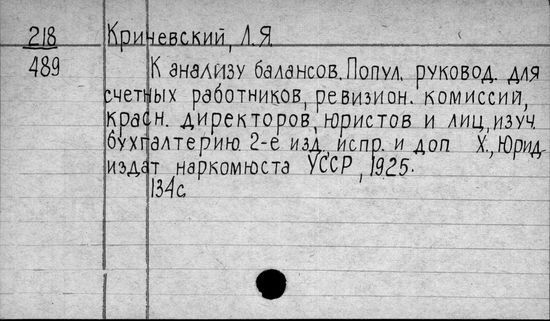 218 Кричевский, Л.Я.
489 К анализу балансов. Попул. руковод. для
счетных работников, ревизион. комиссий,
красн. директоров, юристов и лиц, изуч.
бухгалтерию. 2-е изд., испр. и доп Х., Юрид.
издат наркомюста УССР, 1925.
134с.